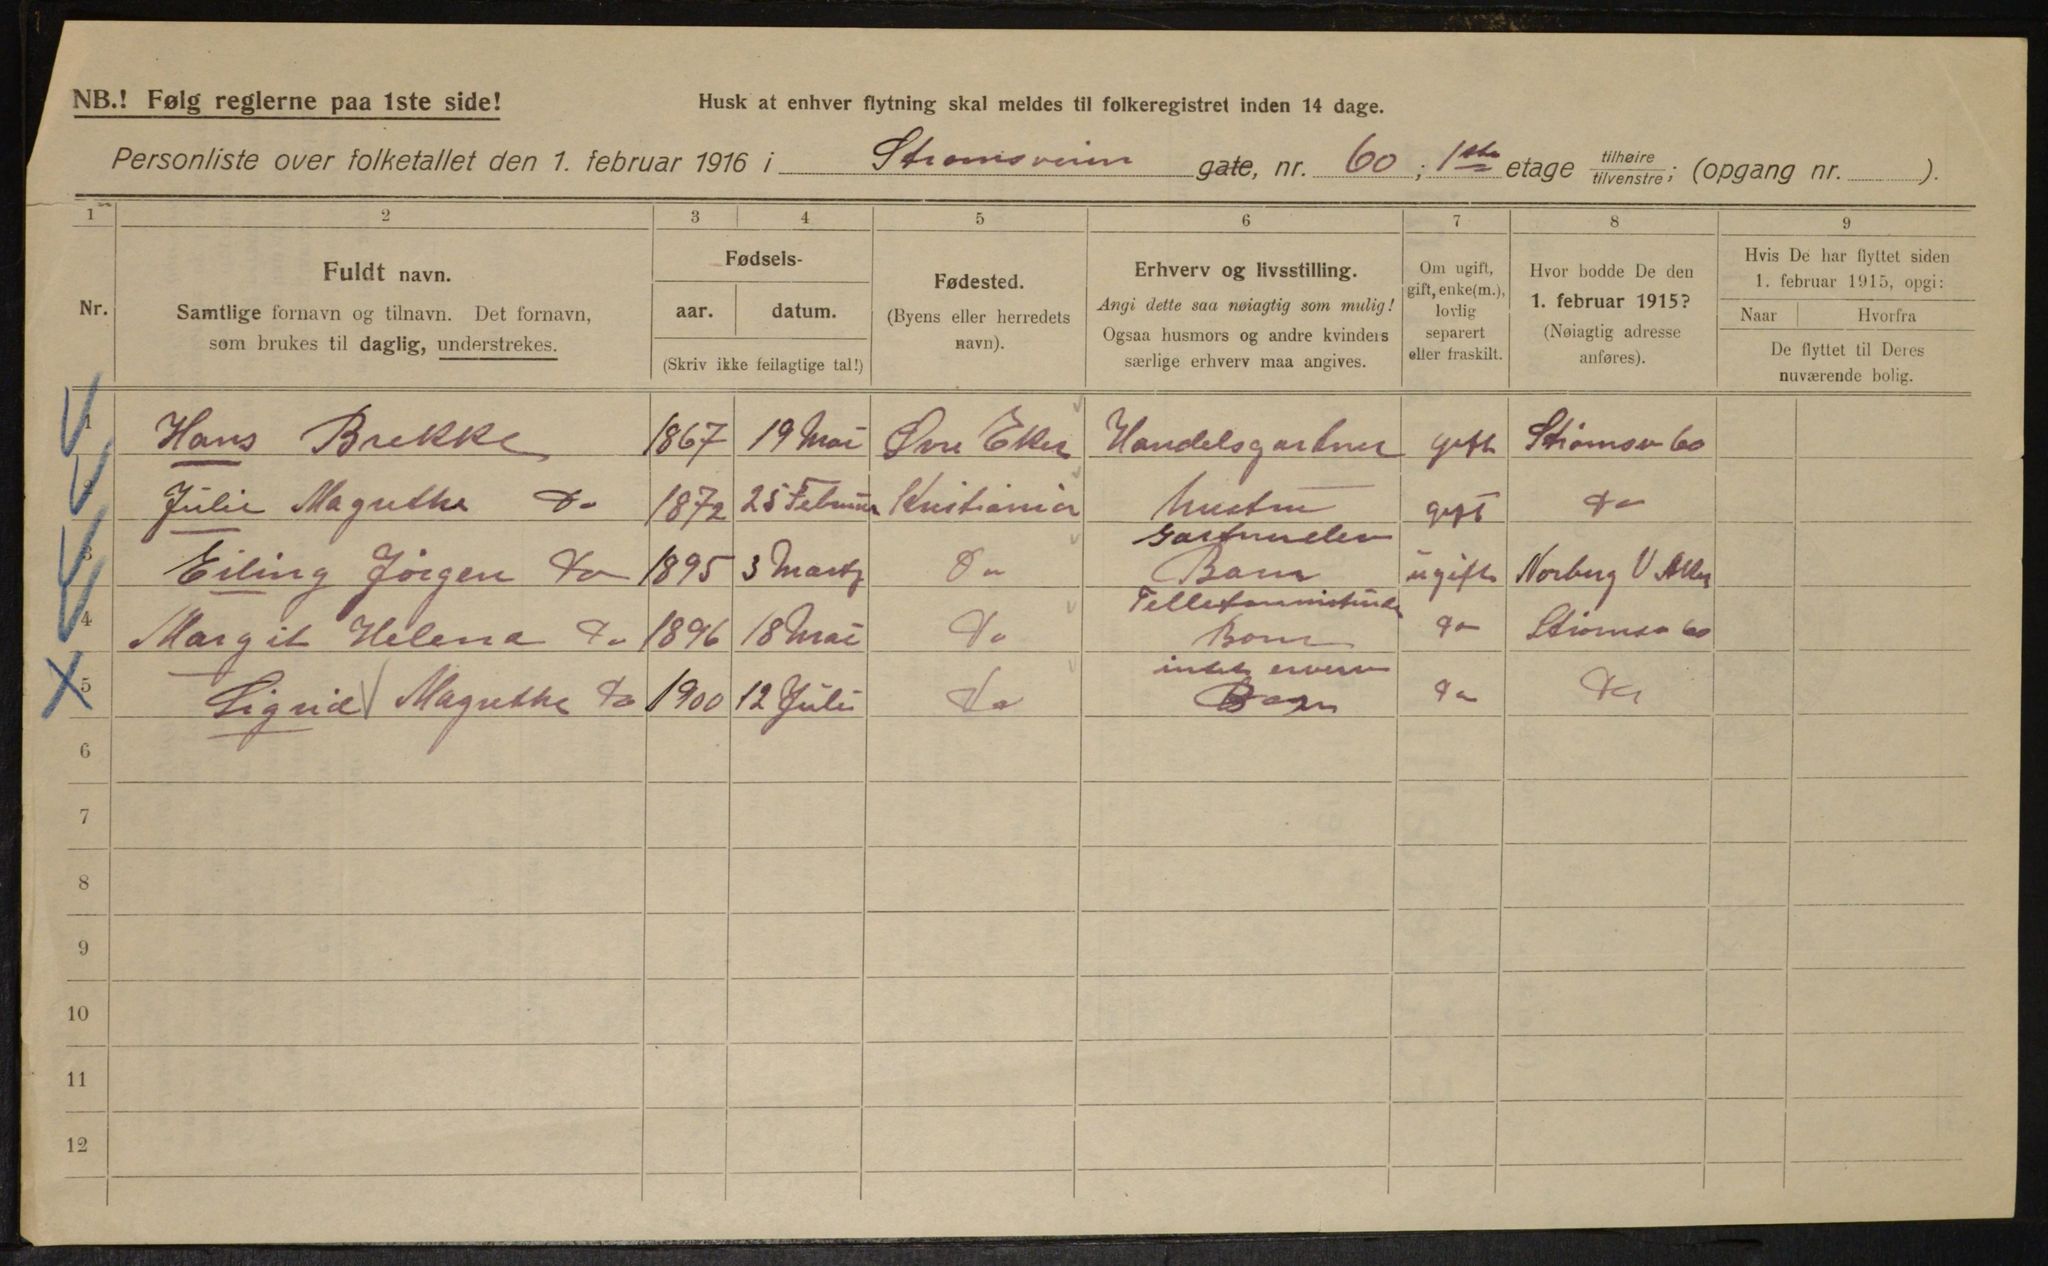 NB.! Følg reglerne paa 1ste side! Husk at enhver flytning skal meldes til folkeregistret inden 14 dage.
Personliste over folketallet den 1. februar 1916 i Strømsveien gate, nr. 60 ; 1ste etage tilhøire tilvenstre ; (opgang nr. ).
1 2 3 4 5 6 7 8 9
Nr.
Fuldt navn.
Samtlige fornavn og tilnavn. Det fornavn,
som brukes til daglig, understrekes.
Fødsels-
aar. datum.
(Skriv ikke feilagtige tal!)
Fødested.
(Byens eller herredets
navn).
Erhverv og livsstilling.
Angi dette saa nøiagtig som mulig!
Ogsaa husmors og andre kvinders
særlige erhverv maa angives.
Om ugift,
gift, enke(m.),
lovlig
separert
eller fraskilt.
Hvor bodde De den
1. februar 1915?
(Nøiagtig adresse
anføres).
Hvis De har flyttet siden
1. februar 1915, opgi:
Naar Hvorfra
De flyttet til Deres
nuværende bolig.
1 Hans Brekke 1867 19 Mai Øvre Eker Handelsgartner gift Strømsv 60
2 Julie Magrethe Do 1872 25 Februar Kristiania Hustru gift do
Gartnerelev
3 Eiling Jörgen Do 1895 3 Marts Do Barn ugift Norberg V Aker
Tellefonistinde
4 Margit Helena Do 1896 18 Mai Do Barn do Strømsv 60
intet erverv
5 Sigrid Magrethe Do 1900 12 Juli Do Barn do Do
6
7
8
9
10
11
12